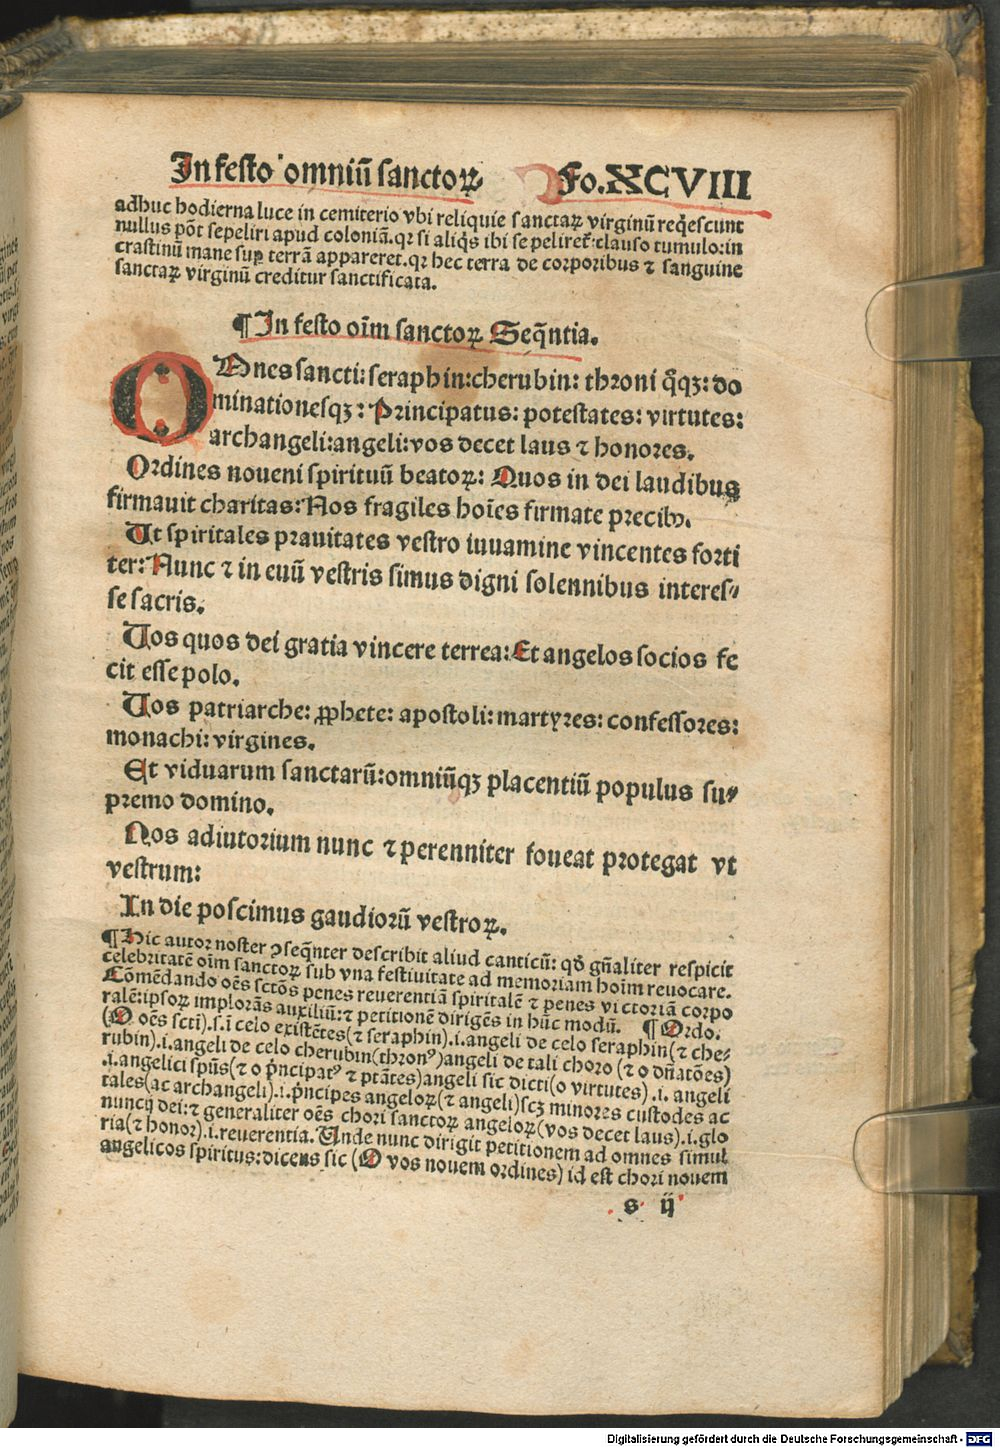 In festo omniū sanctoꝝ Fo. XCVIII
adhuc hodierna luce in cemiterio vbi reliquie sanctaꝝ virginū reqͥescunt
nullus põt sepeliri apud coloniã. qꝛ si aliqͥs ibi sepeliret᷑: clauso tumulo: in
crastinū mane sup̱ terrã appareret. qꝛ hec terra de corporibus ⁊ sanguine
sanctaꝝ virginū creditur sanctificata.
¶ In festo oīm sanctoꝝ Seq̄ntia.
OMnes sancti: seraphin: cherubin: throni q̄qꝫ: do
minationesqꝫ: Principatus: potestates: virtutes:
archangeli: angeli: vos decet laus ⁊ honores.
Ordines noueni spirituū beatoꝝ: Quos in dei laudibus
firmauit charitas: Nos fragiles hoīes firmate precibꝰ.
Ut spiritales prauitates vestro iuuamine vincentes forti
ter: Nunc ⁊ in euū vestris simus digni solennibus interes⸗
se sacris.
Uos quos dei gratia vincere terrea: Et angelos socios fe
cit esse polo.
Uos patriarche: ꝓphete: apostoli: martyres: confessores:
monachi: virgines.
Et viduarum sanctarū: omniūqꝫ placentiū populus su⸗
premo domino.
Nos adiutorium nunc ⁊ perenniter foueat protegat vt
vestrum:
In die poscimus gaudiorū vestroꝝ.
¶ Hic autor noster ꝯseq̄nter describit aliud canticū: qd̓ gñaliter respicit
celebritatē oīm sanctoꝝ sub vna festiuitate ad memoriam hoīm reuocare.
Cōmēdando oēs sctōs penes reuerentiã spiritalē ⁊ penes victoriã corpo
ralē: ipsoꝝ implorãs auxiliū: ⁊ petitionē dirigēs in hūc modū. ¶ Ordo.
(O oēs sctī) .s. ī celo existētes (⁊ seraphin) .i. angeli de celo seraphin (⁊ che⸗
rubin) .i. angeli de celo cherubin (thronꝰ) angeli de tali choro (⁊ o dñatōes)
.i. angelici spūs (⁊ o pͥncipatꝰ ⁊ ptãtes) angeli sic dicti (o virtutes) .i. angeli
tales (ac archangeli) .i. pͥncipes angeloꝝ (⁊ angeli) scꝫ minores custodes ac
nuncij dei: ⁊ generaliter oēs chori sanctoꝝ angeloꝝ (vos decet laus) .i. glo
ria (⁊ honor) .i. reuerentia. Unde nunc dirigit petitionem ad omnes simul
angelicos spiritus: dicens sic (O vos nouem ordines) id est chori nouem
s ij
Digitalisierung gefördert durch die Deutsche Forschungsgemeinschaft - DFG